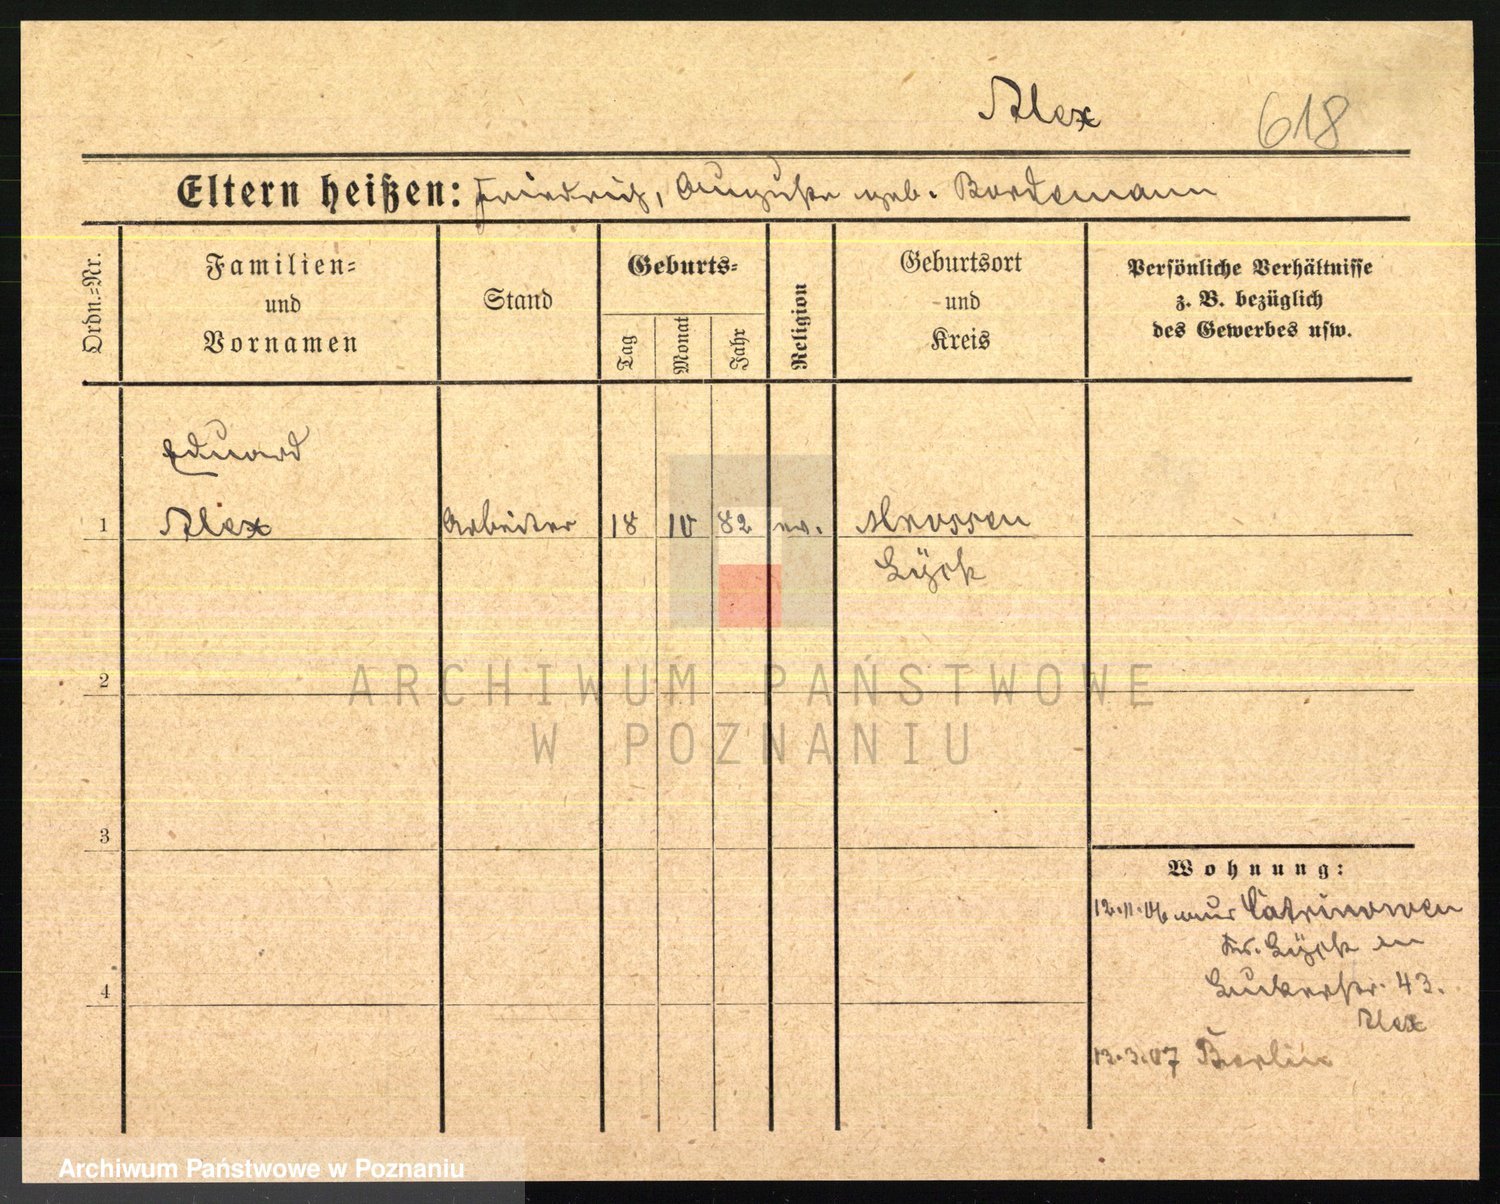 Alex
618
Eltern heißen: Friedrich, Auguste geb. Bordemann
Ordn.-Nr.
Familien-
und
Vornamen
Stand
Geburts-
Tag
Monat
Jahr
Religion
Geburtsort
und
Kreis
Persönliche Verhältnisse
z. B. bezüglich
des Gewerbes usw.
Eduard
1 Alex Arbeiter 18 10 82 ev. Mrossen
Lyck
2
3
4
Wohnung:
12.11.06 aus
Kr. Lyck in
43.
Alex
12.3.07 Berlin
ARCHIWUM PAŃSTWOWE
W POZNANIU
Archiwum Państwowe w Poznaniu